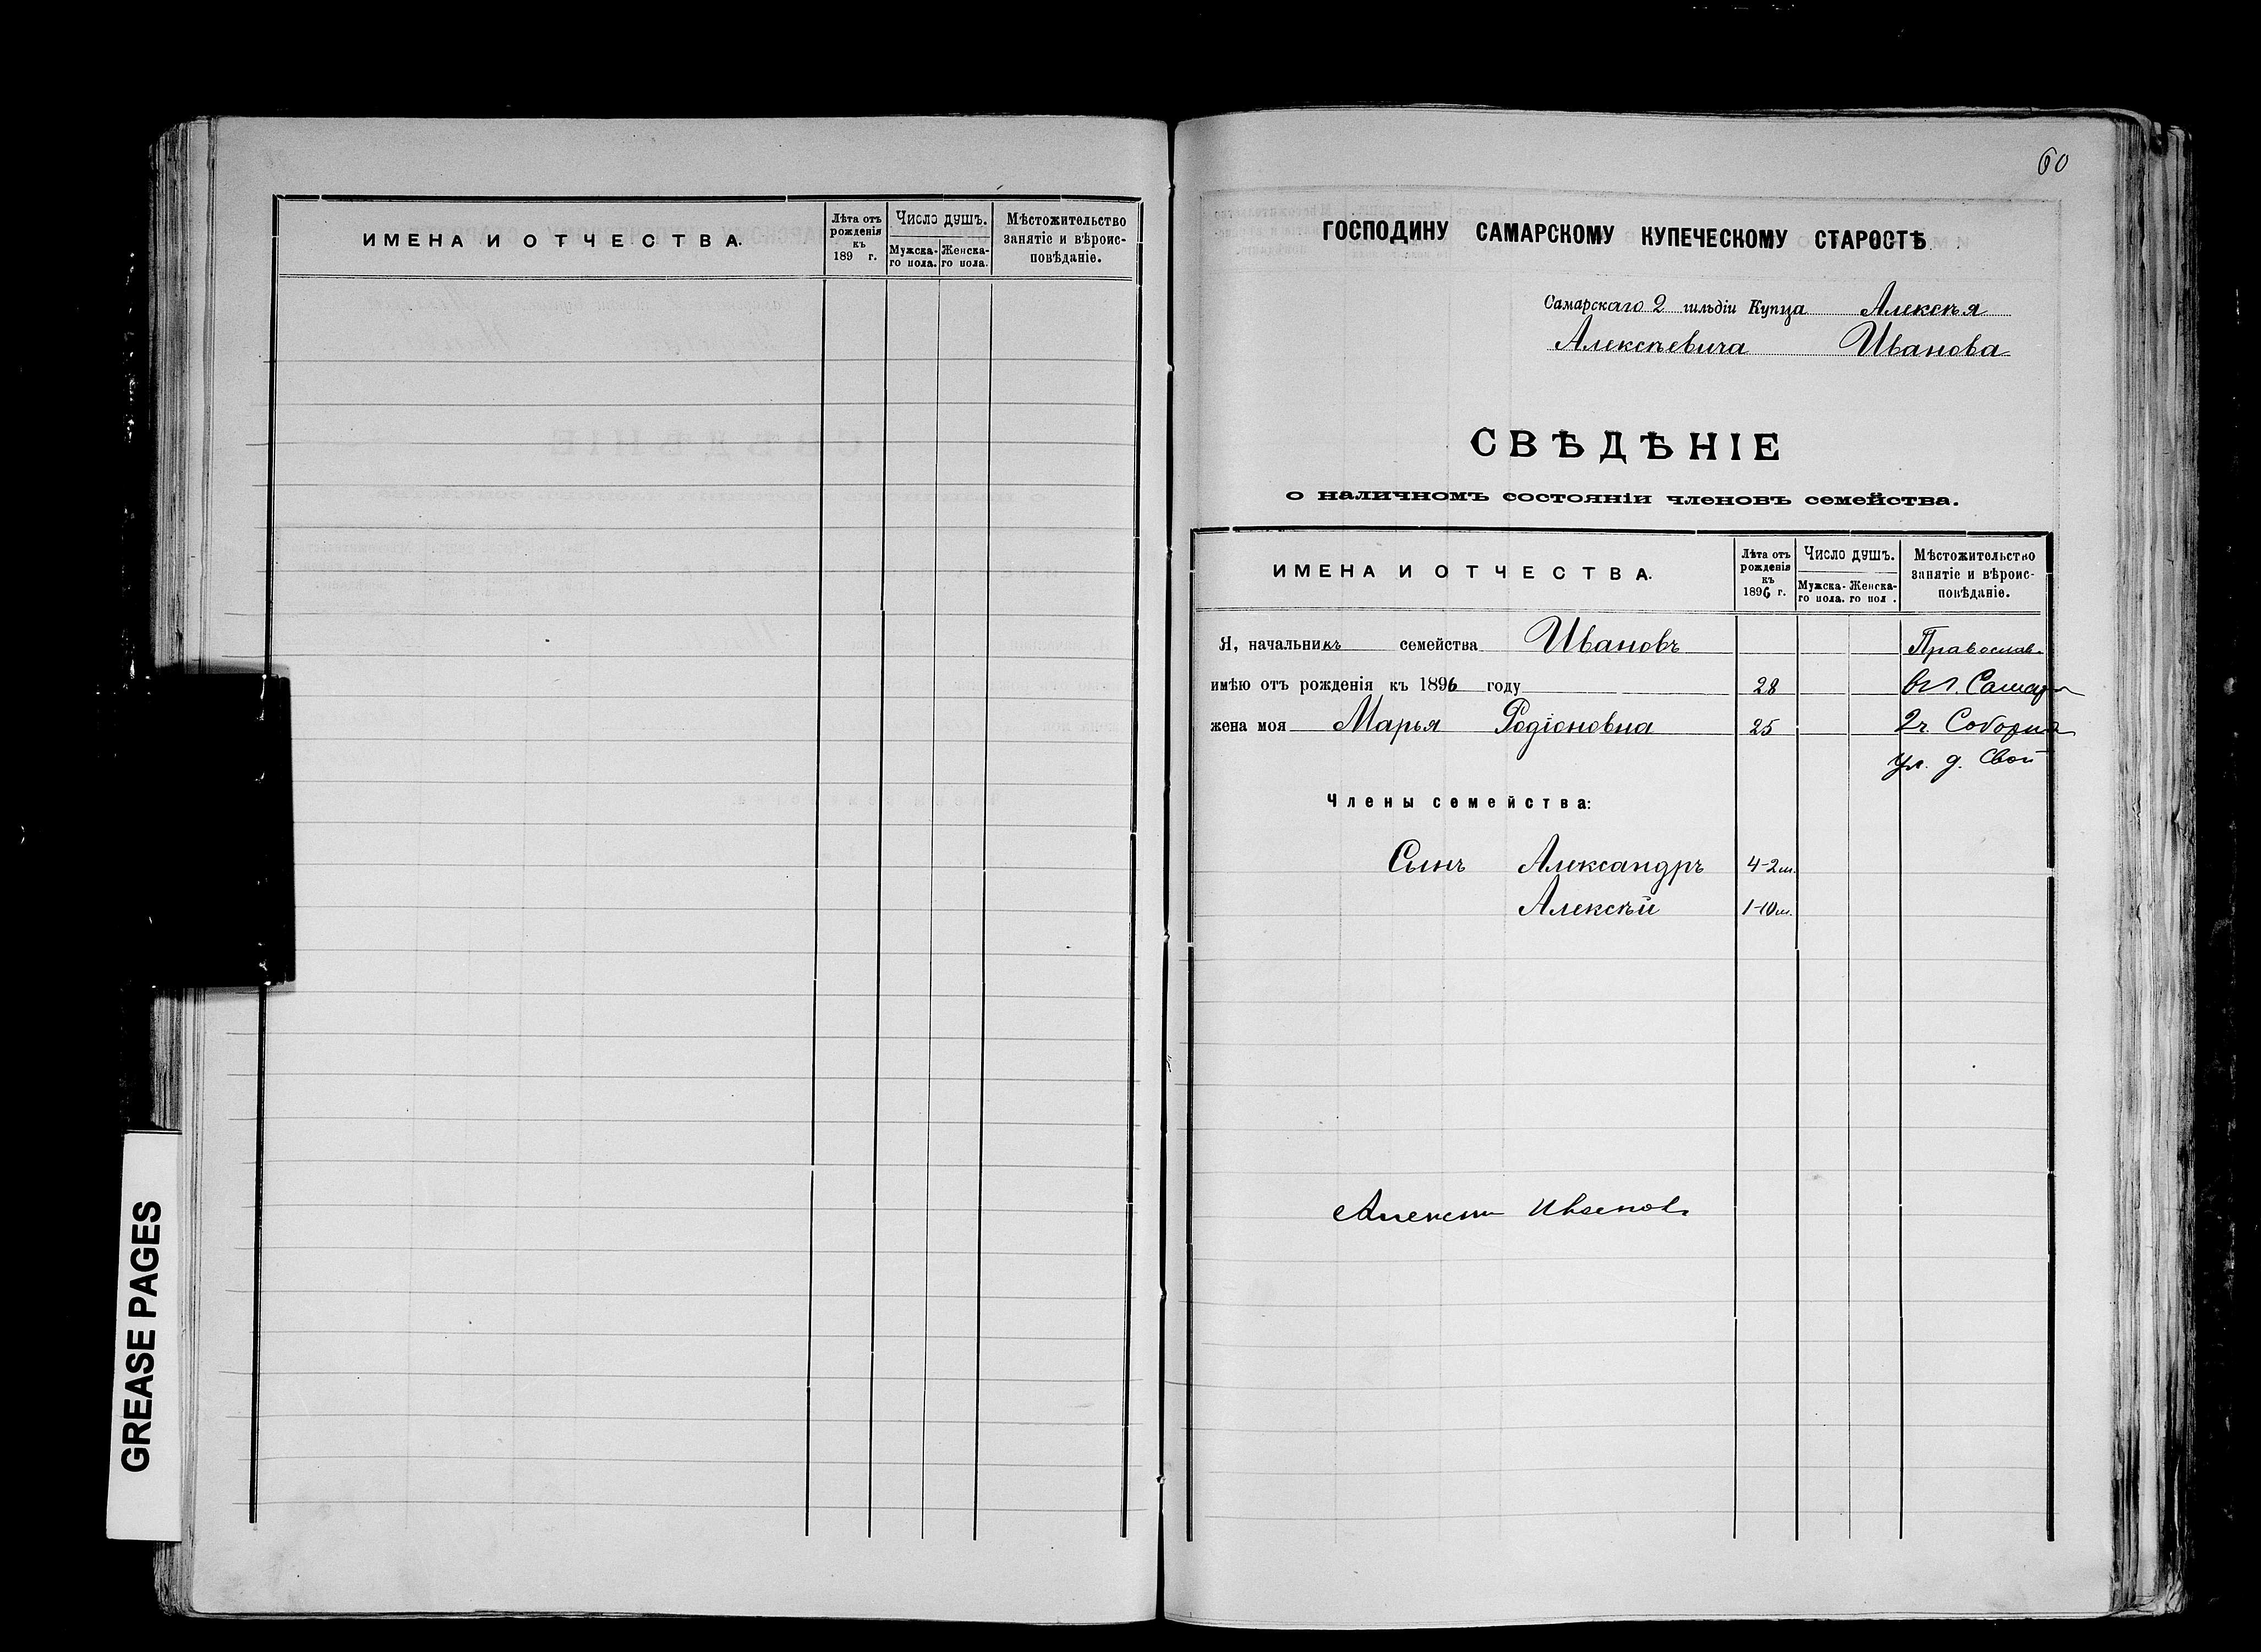 ИМЕНА И ОТЧЕСТВА.
Лѣта отъ рожденія къ 189 г.
Число душъ.
Мужска-го пола.
Женска-го пола.
Мѣстожительство занятіе и вѣроис-повѣданіе.
GREASE PAGES
60
ГОСПОДИНУ САМАРСКОМУ КУПЕЧЕСКОМУ СТАРОСТѢ
Самарскаго 2 гильдіи Купца Алексѣя
Алексѣевича Иванова
СВѢДѢНІЕ
о наличномъ состояніи членовъ семейства.
ИМЕНА И ОТЧЕСТВА.
Лѣта отъ рожденія къ 1896 г.
Число душъ.
Мужска-го пола.
Женска-го пол .
Мѣстожительство занятіе и вѣроис-повѣданіе.
Я, начальникъ семейства Ивановъ Православ.
имѣю отъ рожденія къ 1896 году 28 въ г. Самарѣ
жена моя Марья Родіоновна 25 2 ч. Соборная
ул. д. Свой
Члены семейства:
Сынъ Александръ 4-2 м.
Алексѣй 1-10 м.
Алексѣй Ивановъ